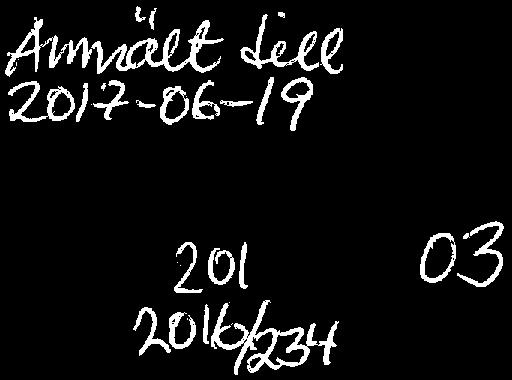 Anmält till
2017-06-19
201
03
2016/234